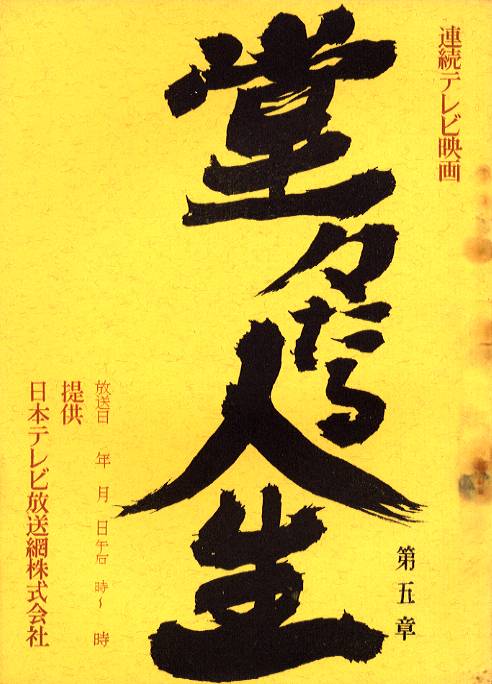 連続テレビ映画
堂々たる人生
第五章
放送日 年 月 日 午后 時〜 時
提供
日本テレビ放送網株式会社